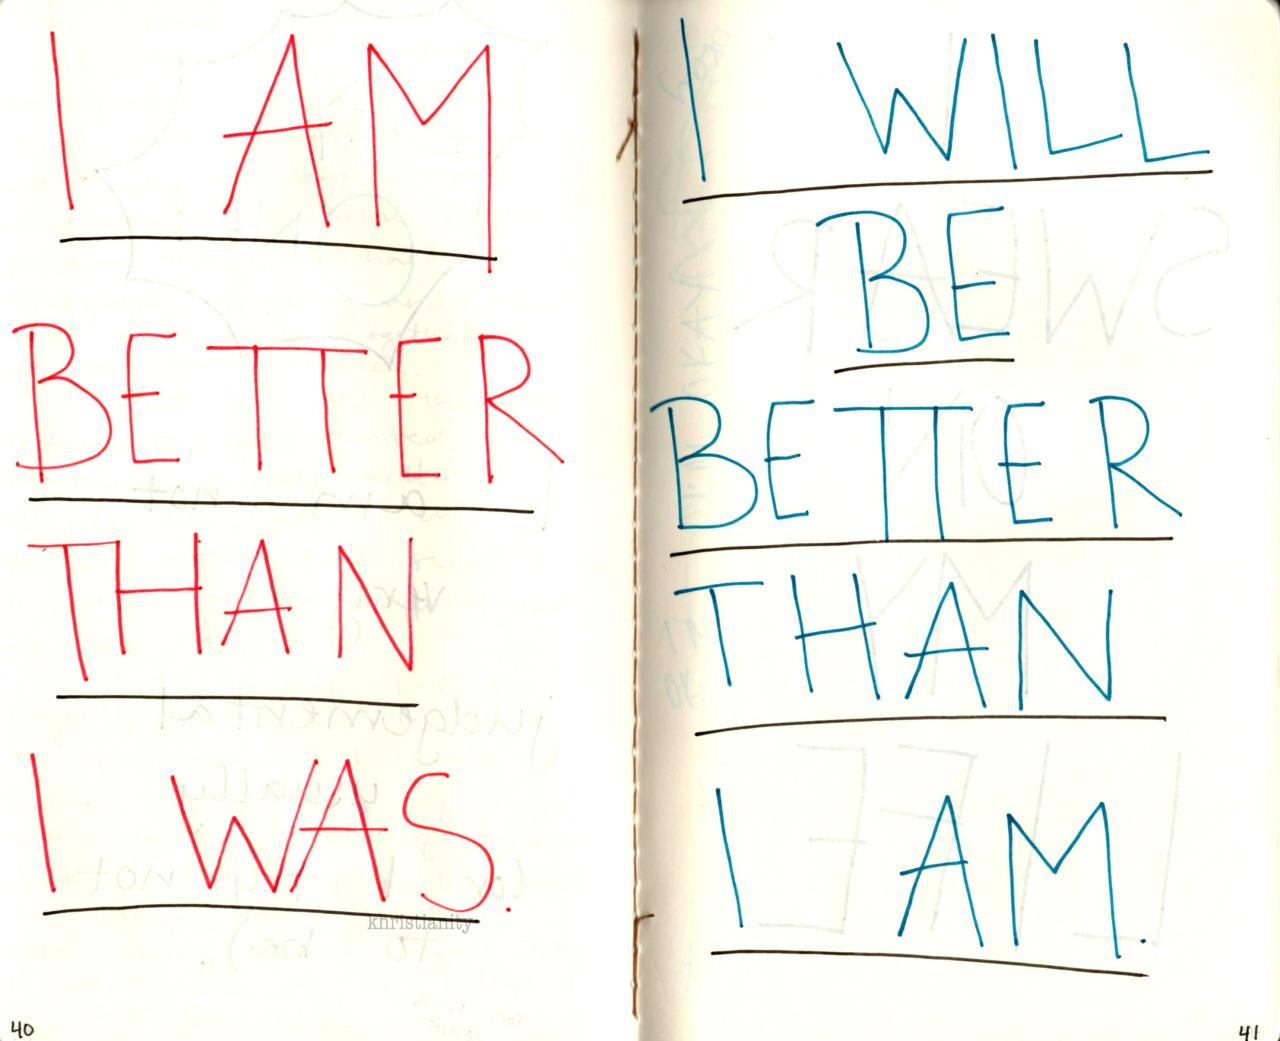 I AM
BETTER
THAN
I WAS.
khristianity
40
I WILL
BE
BETTER
THAN
I AM.
41